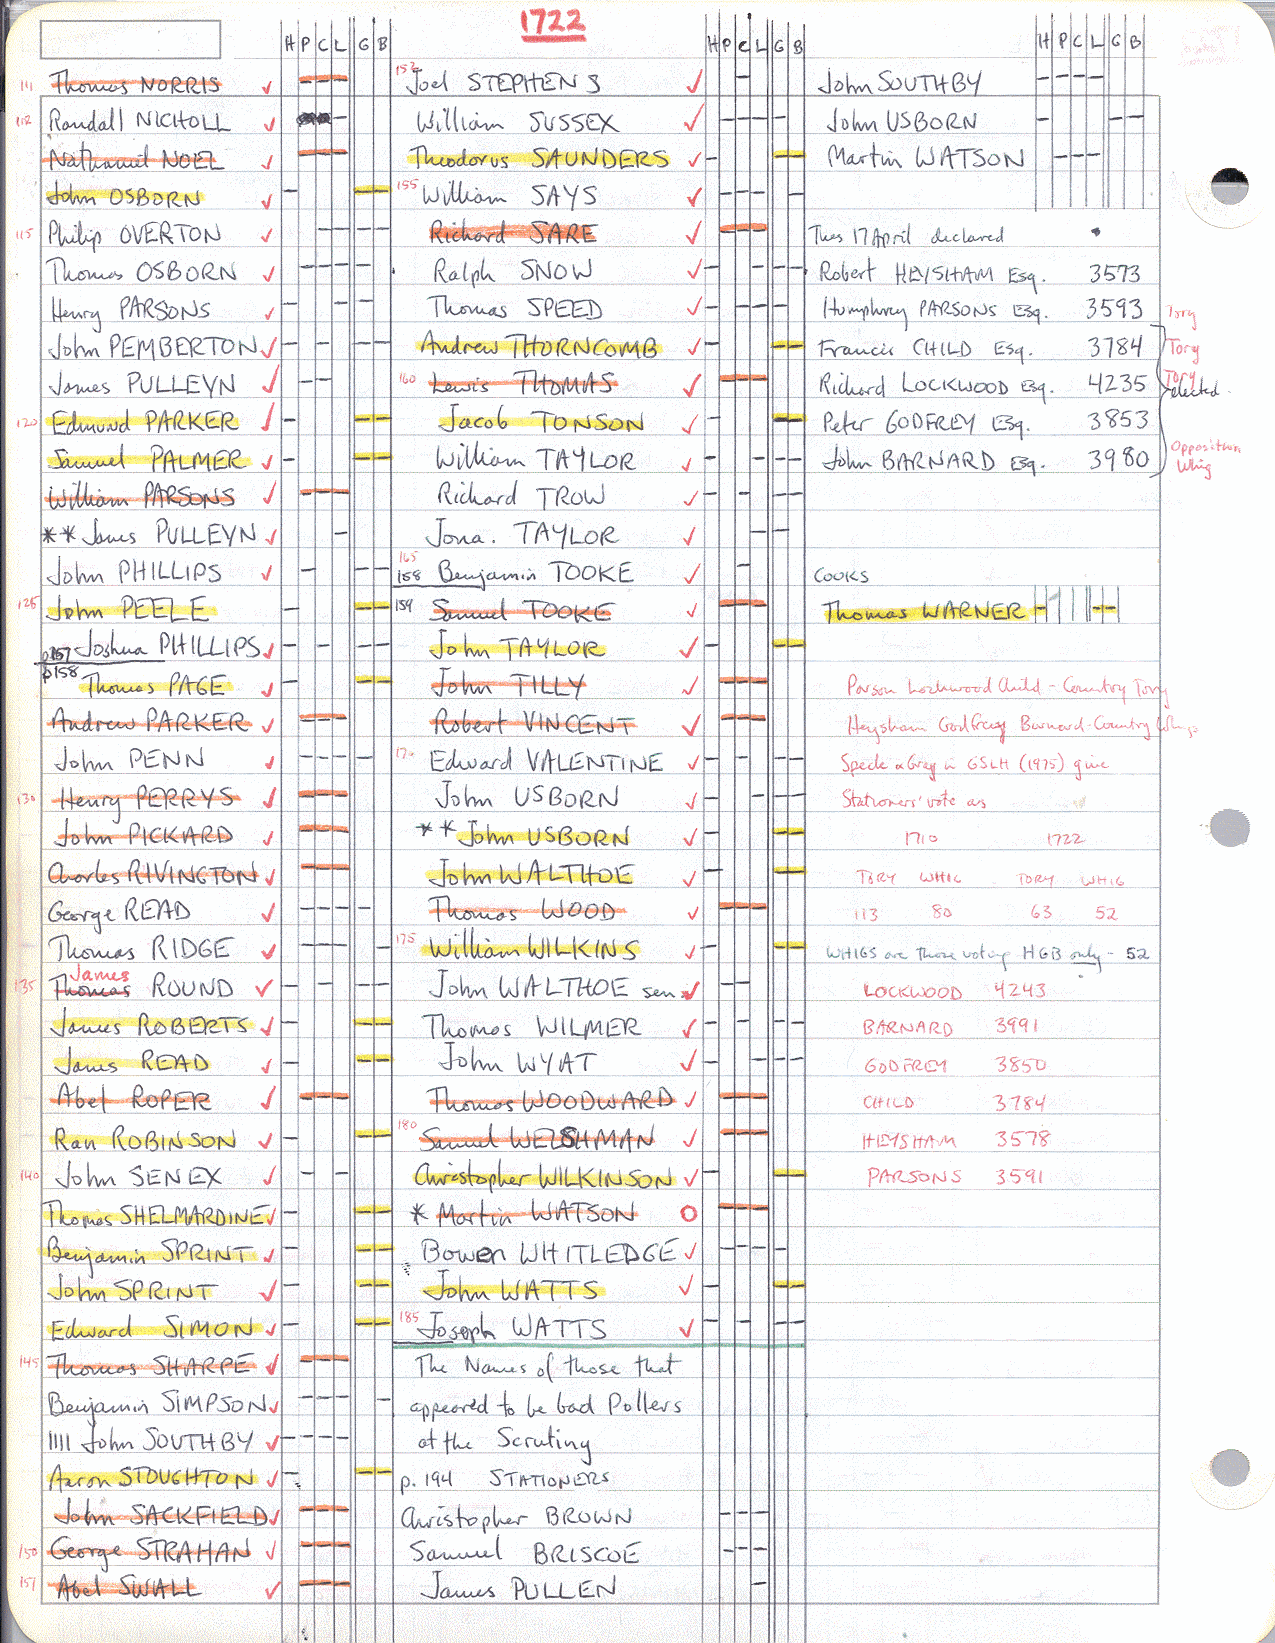 1722
H P C L G B
111 Thomas NORRIS ✓
112 Randall NICHOLL ✓
Nathaniel NOEL ✓
John OSBORN ✓
115 Philip OVERTON ✓
Thomas OSBORN ✓
Henry PARSONS ✓
John PEMBERTON ✓
James PULLEYN ✓
120 Edmund PARKER ✓
Samuel PALMER ✓
William PARSONS ✓
** James PULLEYN ✓
John PHILLIPS ✓
125 John PEELE
p157 Joshua PHILLIPS ✓
p158 Thomas PAGE ✓
Andrew PARKER ✓
John PENN ✓
130 Henry PERRYS ✓
John PICKARD ✓
Charles RIVINGTON ✓
George READ ✓
Thomas RIDGE ✓
James
135 Thomas ROUND ✓
James ROBERTS ✓
James READ ✓
Abel ROPER ✓
Ran ROBINSON ✓
140 John SENEX ✓
Thomas SHELMARDINE ✓
Benjamin SPRINT ✓
John SPRINT ✓
Edward SIMON ✓
145 Thomas SHARPE ✓
Benjamin SIMPSON ✓
IIII John SOUTHBY ✓
Aaron STOUGHTON ✓
John SACKFIELD ✓
150 George STRAHAN ✓
151 Abel SWALL ✓
H P C L G B
152 Joel STEPHENS ✓
William SUSSEX ✓
Theodorus SAUNDERS ✓
155 William SAYS ✓
Richard SARE ✓
Ralph SNOW ✓
Thomas SPEED ✓
Andrew THORNCOMB ✓
160 Lewis THOMAS ✓
Jacob TONSON ✓
William TAYLOR ✓
Richard TROW ✓
Jona. TAYLOR ✓
165
158 Benjamin TOOKE ✓
159 Samuel TOOKE ✓
John TAYLOR ✓
John TILLY ✓
Robert VINCENT ✓
170 Edward VALENTINE ✓
John USBORN ✓
** John USBORN ✓
John WALTHOE ✓
Thomas WOOD ✓
175 William WILKINS ✓
John WALTHOE sen ✓
Thomas WILMER ✓
John WYAT ✓
Thomas WOODWARD ✓
180 Samuel WELSHMAN ✓
Christopher WILKINSON ✓
* Martin WATSON O
Bowen WHITLEDGE ✓
John WATTS ✓
185 Joseph WATTS ✓
The Names of those that
appeared to be bad Pollers
at the Scrutiny
p. 194 STATIONERS
Christopher BROWN
Samuel BRISCOE
James PULLEN
H P C L G B
John SOUTHBY
John USBORN
Martin WATSON
Tues 17 April declared
Robert HEYSHAM Esq. 3573
Humphrey PARSONS Esq. 3593 Tory
Francis CHILD Esq. 3784 Tory
Richard LOCKWOOD Esq. 4235 Tory
elected.
Peter GODFREY Esq. 3853
John BARNARD Esq. 3980 Opposition
Whig
COOKS
Thomas WARNER
Parson Lockwood Child - Country Tory
Heysham Godfrey Barnard - Country Whigs
Speck & Gray in GSLH (1975) give
Stationers' vote as
1710 1722
TORY WHIG TORY WHIG
113 80 63 52
WHIGS are those voting HGB only - 52
LOCKWOOD 4243
BARNARD 3991
GODFREY 3850
CHILD 3784
HEYSHAM 3578
PARSONS 3591